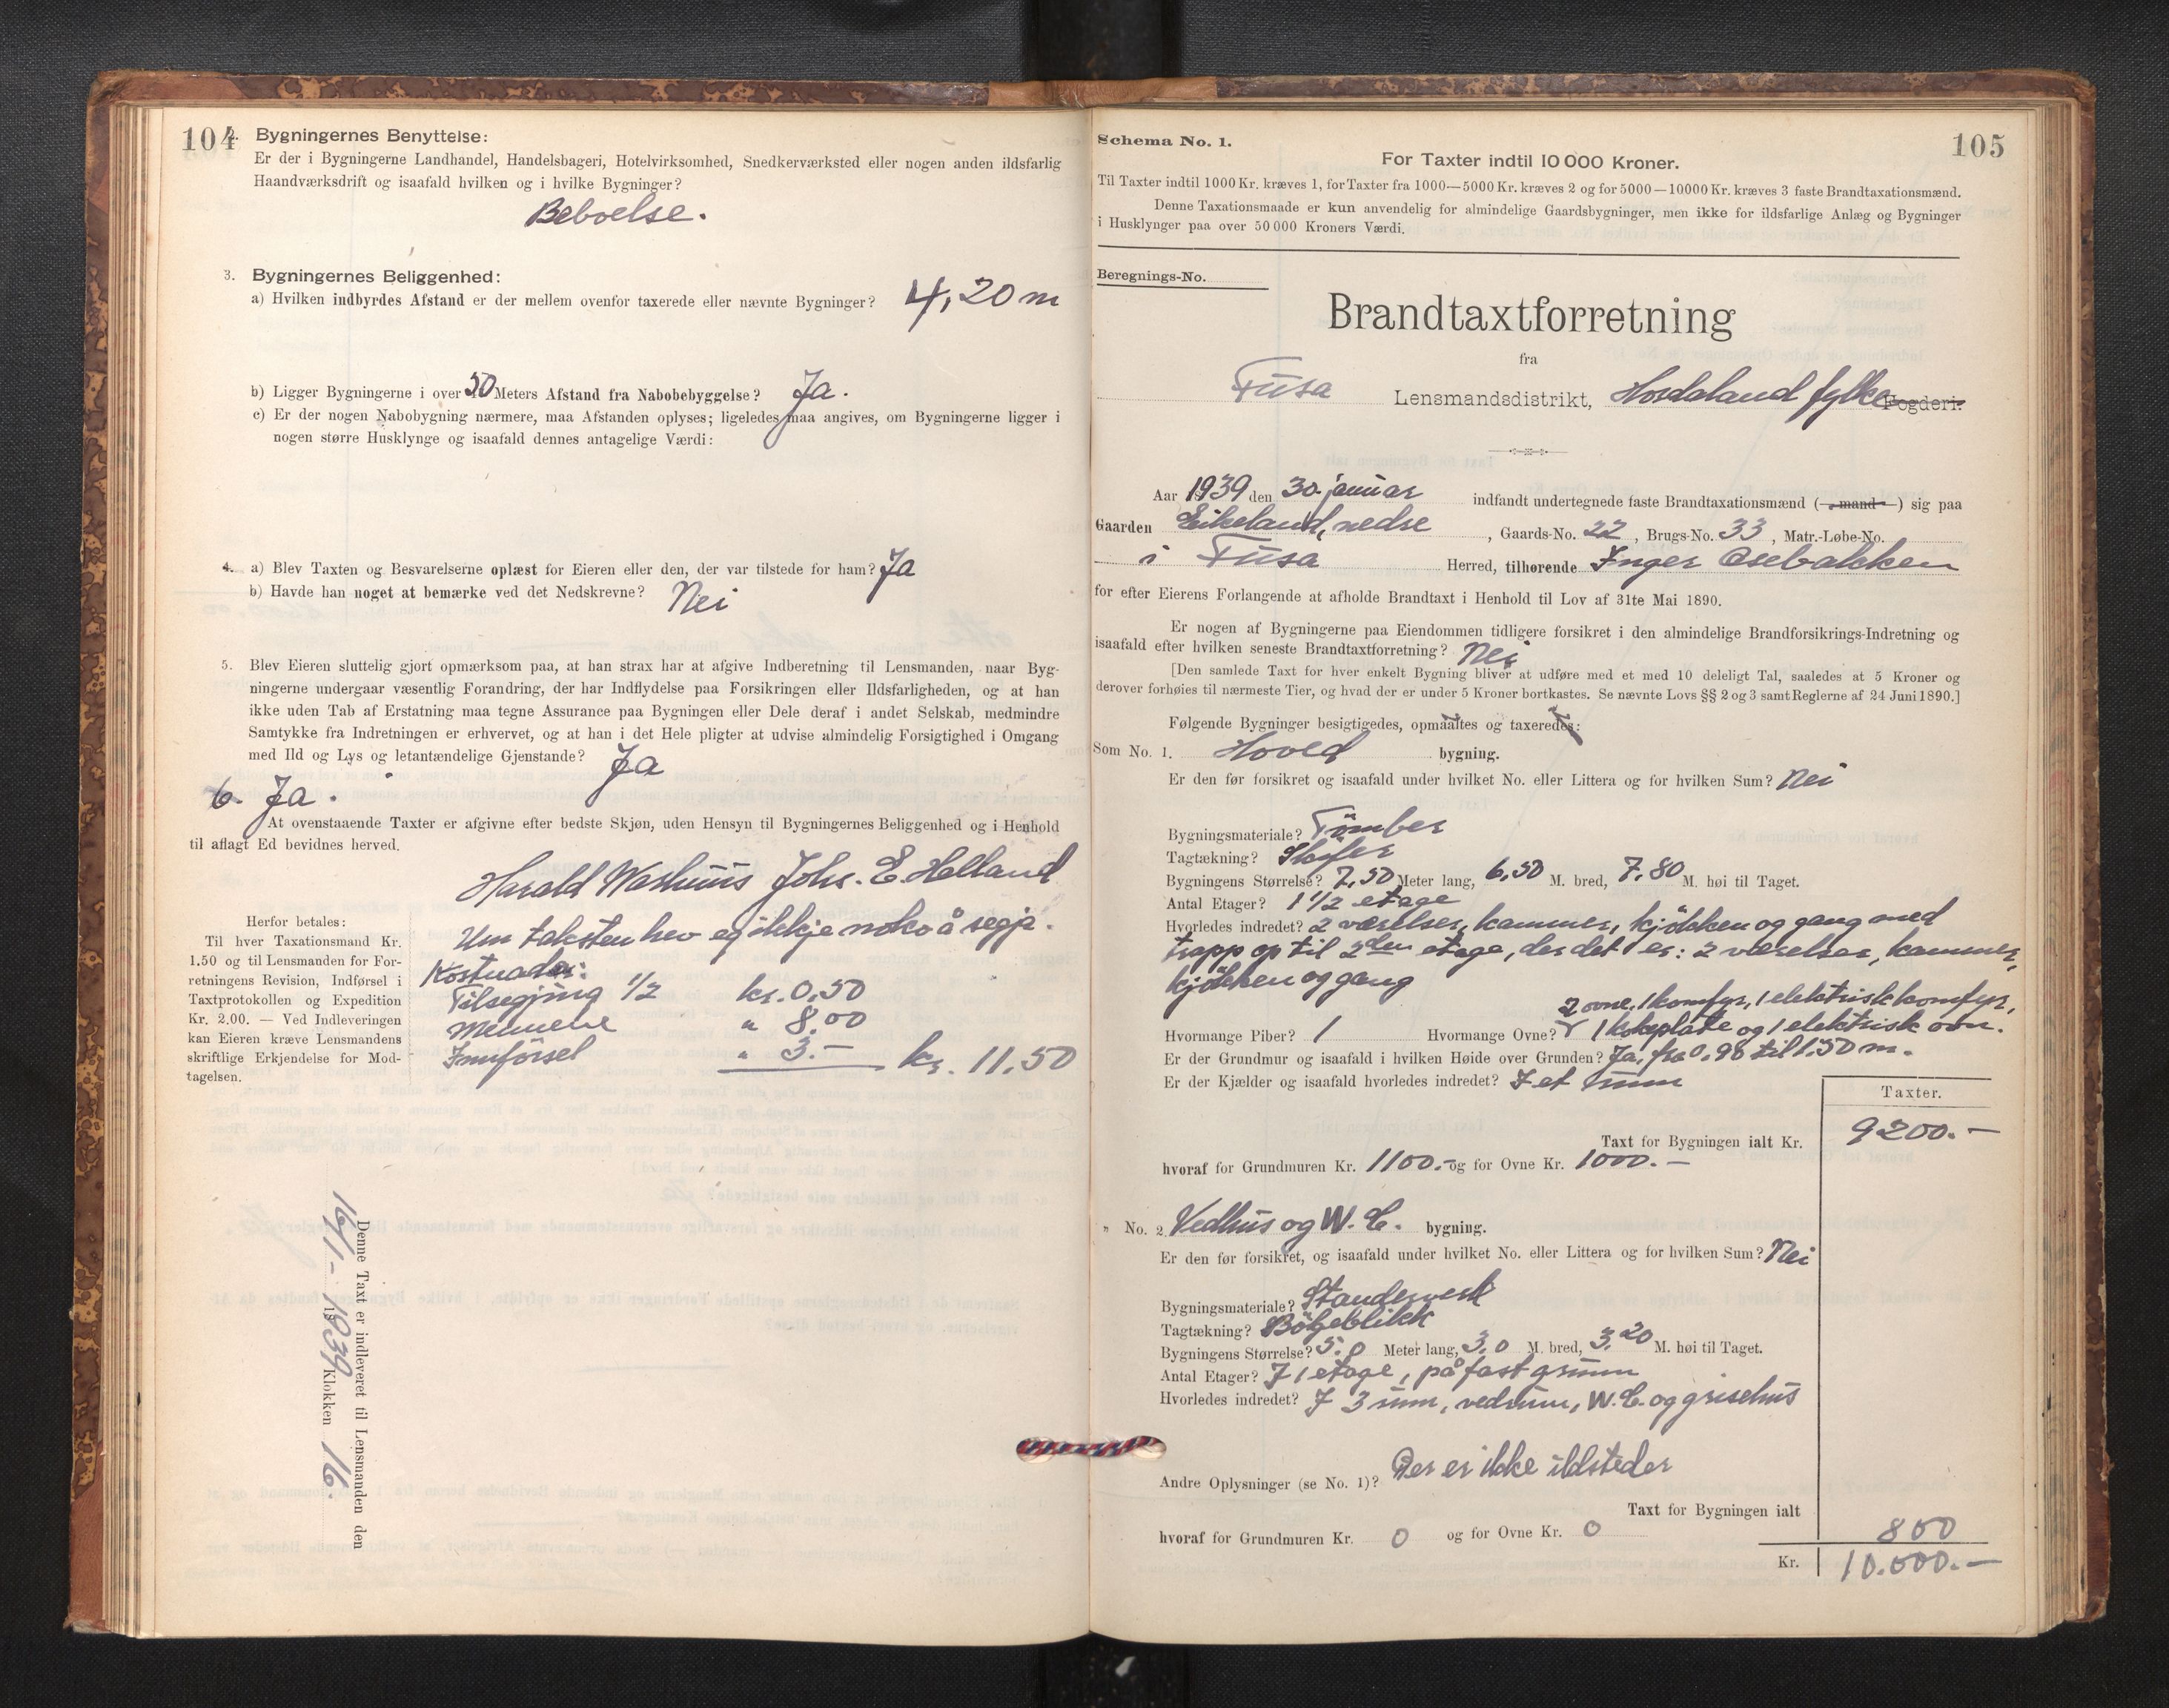 104
2. Bygningernes Benyttelse:
Er der i Bygningerne Landhandel, Handelsbageri, Hotelvirksomhed, Snedkerværksted eller nogen anden ildsfarlig
Haandværksdrift og isaafald hvilken og i hvilke Bygninger?
Beboelse.
3. Bygningernes Beliggenhed:
a) Hvilken indbyrdes Afstand er der mellem ovenfor taxerede eller nævnte Bygninger? 4,20 m
b) Ligger Bygningerne i over 50 Meters Afstand fra Nabobebyggelse? Ja.
c) Er der nogen Nabobygning nærmere, maa Afstanden oplyses; ligeledes maa angives, om Bygningerne ligger i
nogen større Husklynge og isaafald dennes antagelige Værdi:
4. a) Blev Taxten og Besvarelserne oplæst for Eieren eller den, der var tilstede for ham? Ja
b) Havde han noget at bemærke ved det Nedskrevne? Nei
5. Blev Eieren sluttelig gjort opmærksom paa, at han strax har at afgive Indberetning til Lensmanden, naar Byg-
ningerne undergaar væsentlig Forandring, der har Indflydelse paa Forsikringen eller Ildsfarligheden, og at han
ikke uden Tab af Erstatning maa tegne Assurance paa Bygningen eller Dele deraf i andet Selskab, medmindre
Samtykke fra Indretningen er erhvervet, og at han i det Hele pligter at udvise almindelig Forsigtighed i Omgang
med Ild og Lys og letantændelige Gjenstande? Ja
6. Ja.
At ovenstaaende Taxter er afgivne efter bedste Skjøn, uden Hensyn til Bygningernes Beliggenhed og i Henhold
til aflagt Ed bevidnes herved.
Harald Johs. E. Helland
Um taksten hev eg ikkje noko å segja.
Kostnader:
Tilsegjing 1/2 kr. 0,50
Mennene " 8.00
Innförsel " 3.– kr. 11.50
Herfor betales:
Til hver Taxationsmand Kr.
1.50 og til Lensmanden for For-
retningens Revision, Indførsel i
Taxtprotokollen og Expedition
Kr. 2.00. — Ved Indleveringen
kan Eieren kræve Lensmandens
skriftlige Erkjendelse for Mod-
tagelsen.
Denne Taxt er indleveret til Lensmanden den
1939 Klokken 16.
105
Schema No. 1.
For Taxter indtil 10 000 Kroner.
Til Taxter indtil 1000 Kr. kræves 1, for Taxter fra 1000—5000 Kr. kræves 2 og for 5000—10000 Kr. kræves 3 faste Brandtaxationsmænd.
Denne Taxationsmaade er kun anvendelig for almindelige Gaardsbygninger, men ikke for ildsfarlige Anlæg og Bygninger
i Husklynger paa over 50 000 Kroners Værdi.
Beregnings-No.
Brandtaxtforretning
fra
Fusa Lensmandsdistrikt, Hordaland fylke Fogderi.
Aar 1939 den 30. januar indfandt undertegnede faste Brandtaxationsmænd (-mand-) sig paa
Gaarden Eikeland, nedre, Gaards-No. 22, Brugs-No. 33, Matr.-Løbe-No.
i Fusa Herred, tilhørende Inger Osebakken
for efter Eierens Forlangende at afholde Brandtaxt i Henhold til Lov af 31te Mai 1890.
Er nogen af Bygningerne paa Eiendommen tidligere forsikret i den almindelige Brandforsikrings-Indretning og
isaafald efter hvilken seneste Brandtaxtforretning? Nei
[Den samlede Taxt for hver enkelt Bygning bliver at udføre med et med 10 deleligt Tal, saaledes at 5 Kroner og
derover forhøies til nærmeste Tier, og hvad der er under 5 Kroner bortkastes. Se nævnte Lovs §§ 2 og 3 samt Reglerne af 24 Juni 1890.]
Følgende Bygninger besigtigedes, opmaaltes og taxeredes:
Som No. 1. Hoved bygning.
Er den før forsikret og isaafald under hvilket No. eller Littera og for hvilken Sum? Nei
Bygningsmateriale? Tömber
Tagtækning? Skifer
Bygningens Størrelse? 7,50 Meter lang, 6,50 M. bred, 7.80 M. høi til Taget.
Antal Etager? 1 1/2 etage
Hvorledes indredet? 2 værelser, kammer, kjökken og gang med
trapp op til 2den etage, der det er: 2 værelser, kammer,
kjökken og gang
2 ovne, 1 komfyr, 1 elektrisk komfyr,
Hvormange Piber? 1 Hvormange Ovne? 1 kokeplate og 1 elektrisk ovn.
Er der Grundmur og isaafald i hvilken Høide over Grunden? Ja, fra 0.90 til 1.50 m.
Er der Kjælder og isaafald hvorledes indredet? I et rum
Taxter.
Taxt for Bygningen ialt Kr. 9200.–
hvoraf for Grundmuren Kr. 1100.– og for Ovne Kr. 1000.–
" No. 2. Vedhus og W.C. bygning.
Er den før forsikret, og isaafald under hvilket No. eller Littera og for hvilken Sum? Nei
Bygningsmateriale? Standerverk
Tagtækning? Bölgeblikk
Bygningens Størrelse? 5.0 Meter lang, 3.0 M. bred, 3.20 M. høi til Taget.
Antal Etager? I 1 etage, på fast grunn
Hvorledes indredet? I 3 rum, vedrum, W.C. og grisehus
Andre Oplysninger (se No. 1)? Der er ikke ildsteder
Taxt for Bygningen ialt 800
hvoraf for Grundmuren Kr. 0 og for Ovne Kr. 0
Kr. 10.000.–